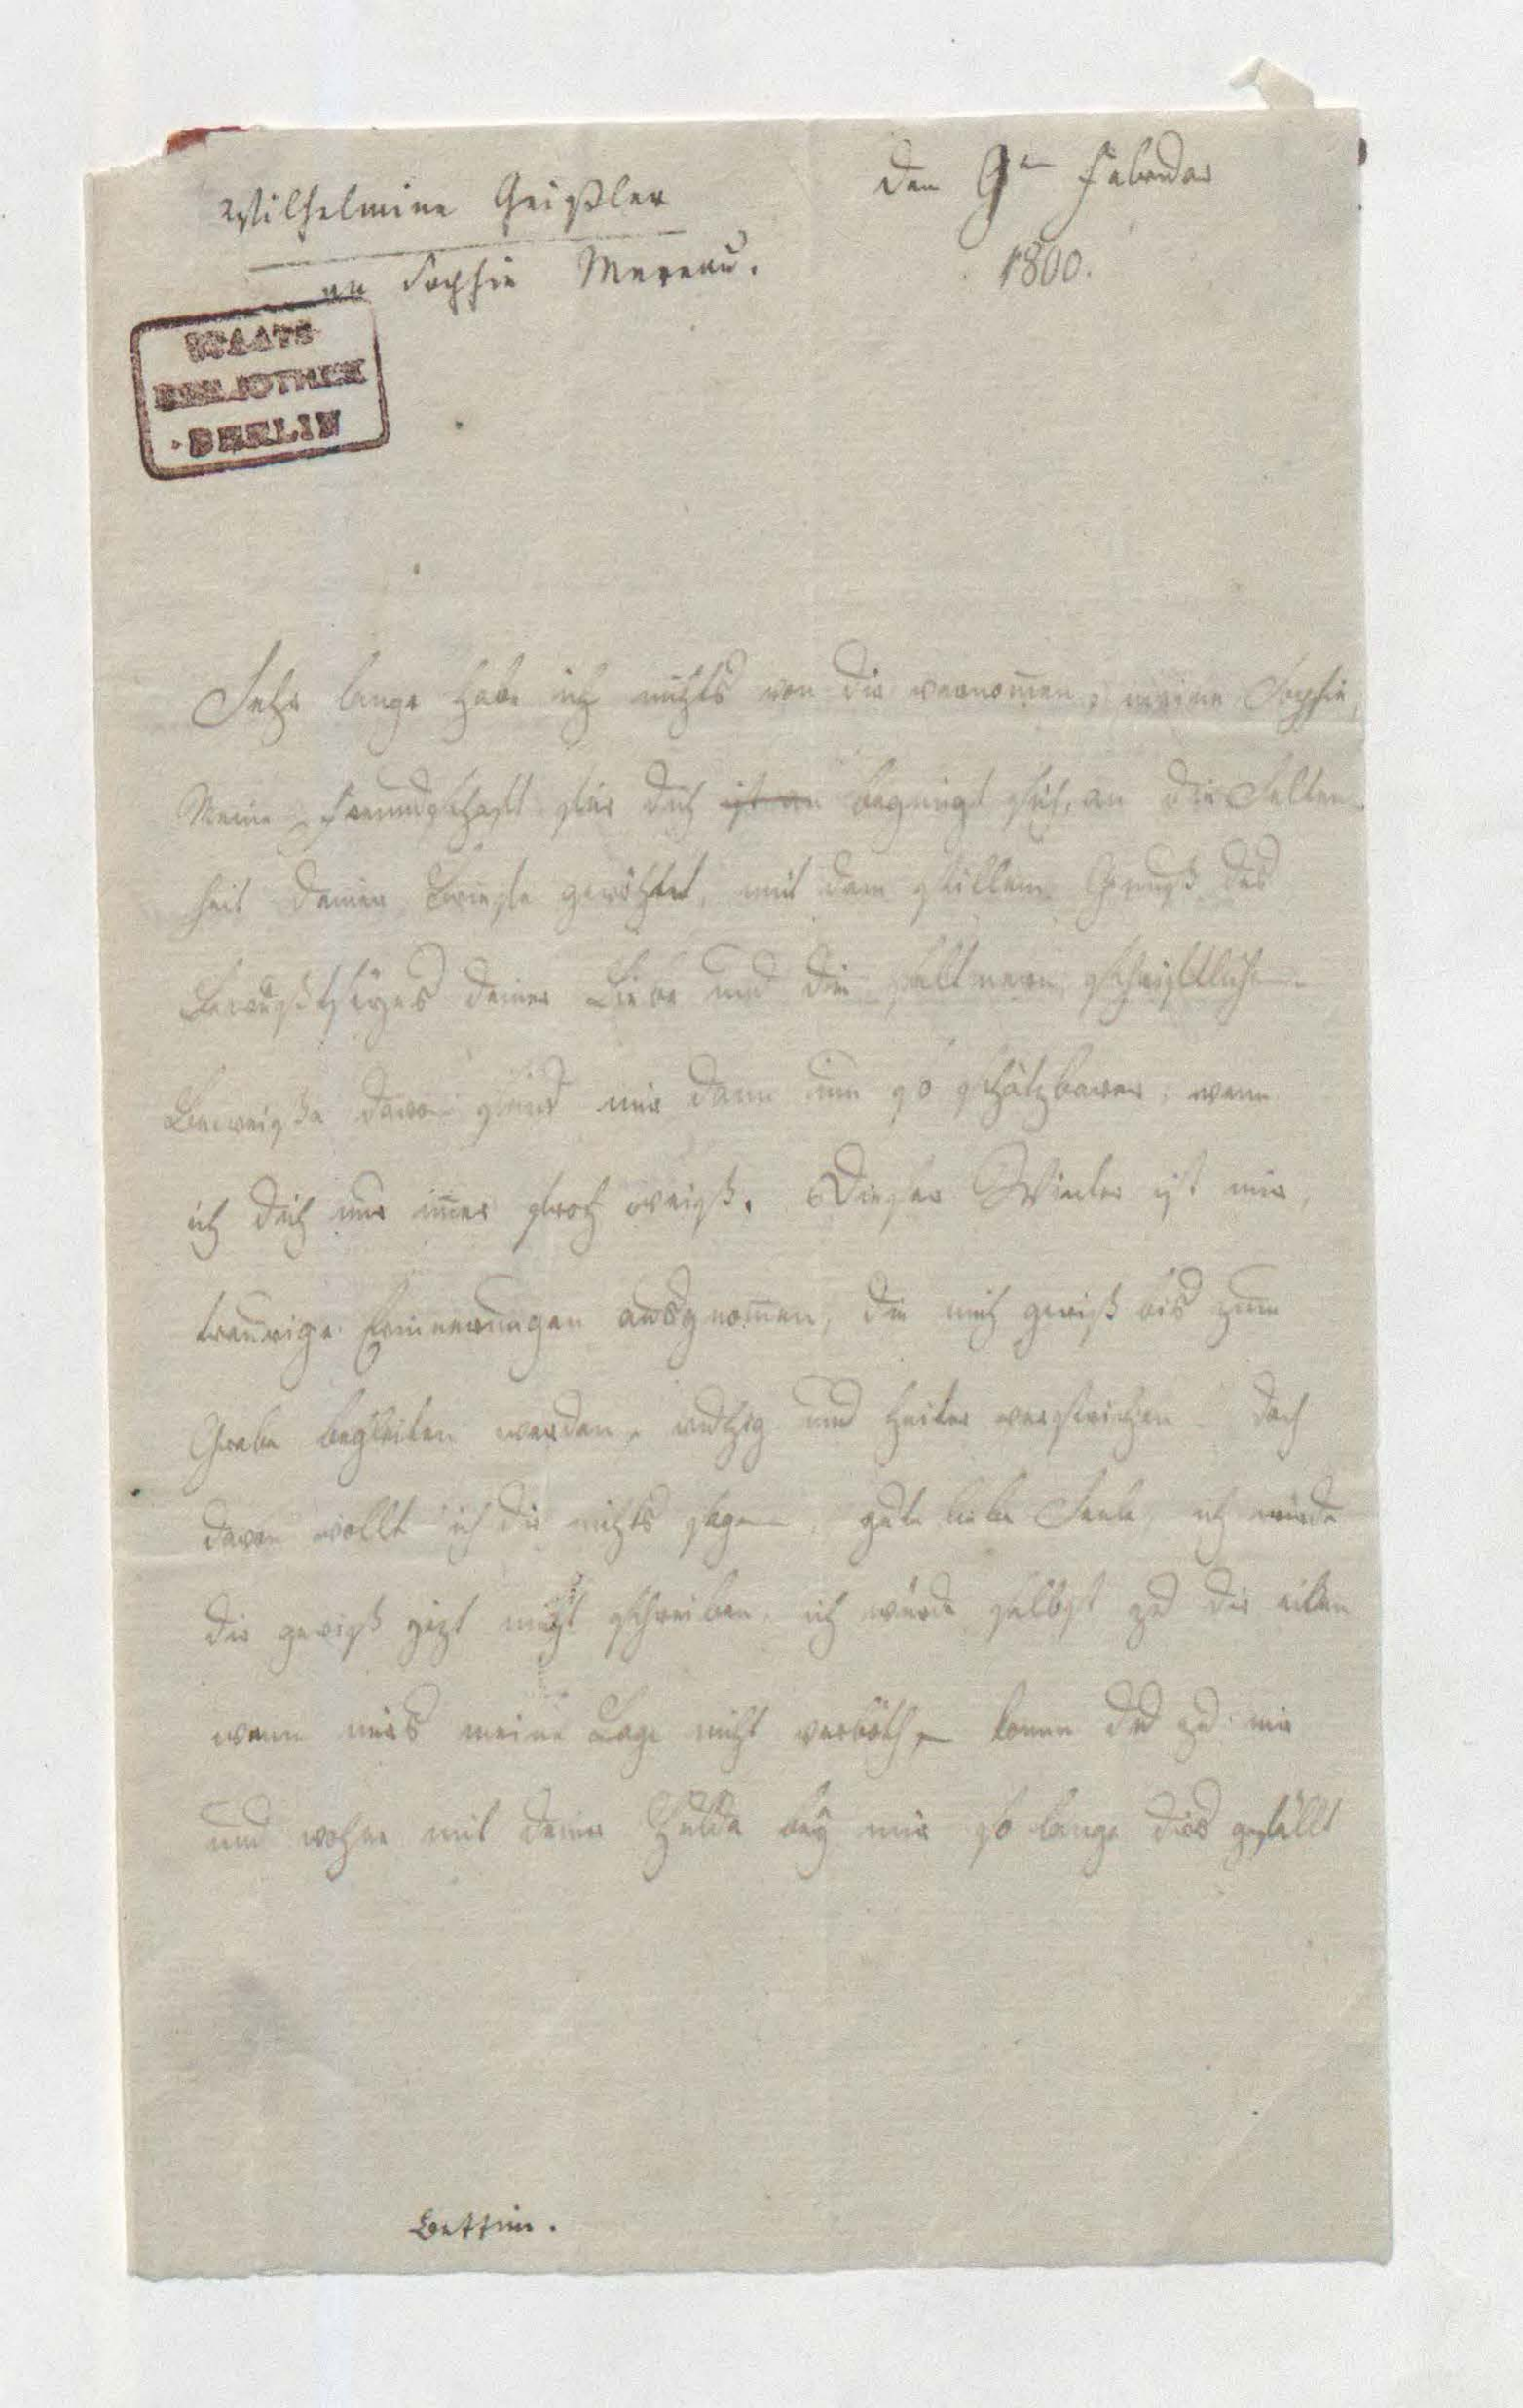 Wilhelmine Geißler
an Sophie Mereau.
den 9ⁿ Februar
1800.
STAATS
BIBLIOTHEK
·BERLIN
Sehr lange habe ich nichts von dir vernom̄en, meine Sophie,
Meine Freundschaft für dich ist an begnügt sich, an die Selten-
heit deiner Briefe gewöhnt, mit dem stillem Genuß des
Bewußtseyns deiner Liebe und die seltnern schriftlichen
Beweiße davon sind mir dann um so schätzbarer, wenn
ich dich nur im̄er froh weiß. Dieser Winter ist mir,
traurige Erinnerungen ausgnom̄en, die mich gewiß bis zum
Grabe begleiten werden, ruhig und heiter verstrichen. Doch
davon wollt ich dir nichts sagen, gute liebe Seele, ich würde
dir gewiß jezt nicht schreiben, ich würde selbst zu dir eilen
wenn mirs meine Lage nicht verböth, komm du zu mir
und wohne mit deiner Hulda bey mir so lange dirs gefällt